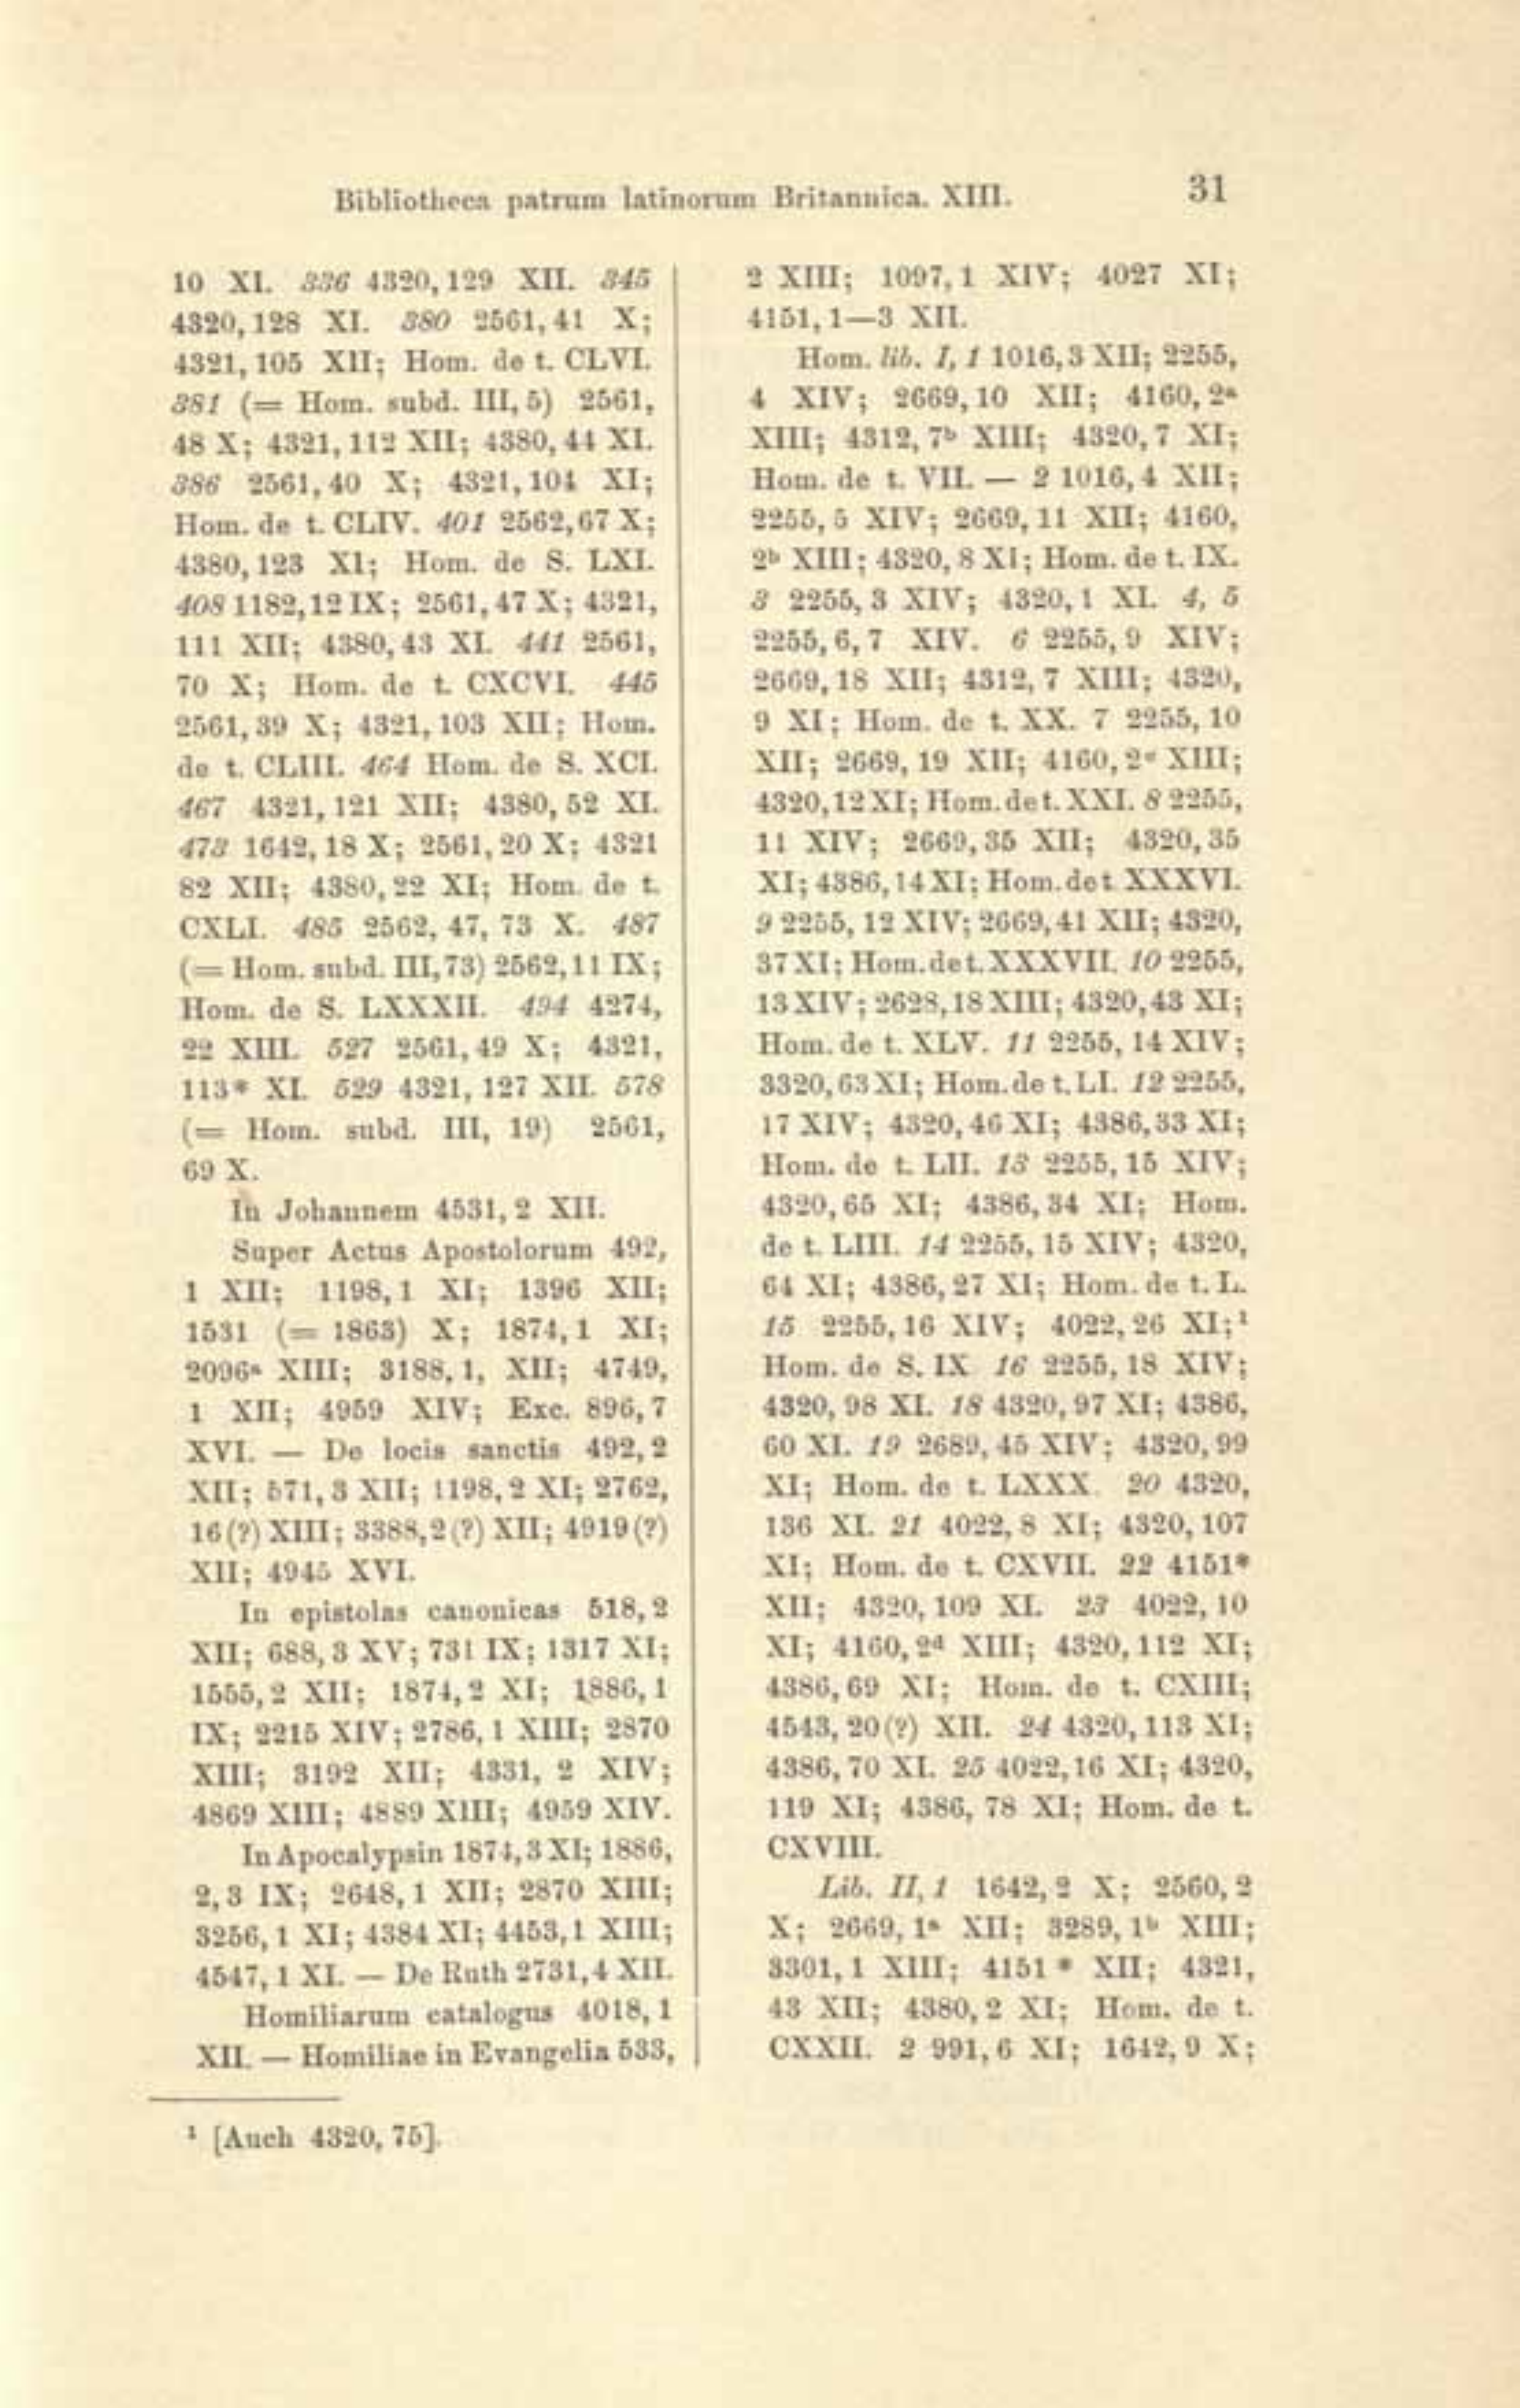 Bibliotheca patrum latinorum Britannica. XIII. 31
10 XI. 336 4320, 129 XII. 345
4320, 128 XI. 380 2561, 41 X;
4321, 105 XII; Hom. de t. CLVI.
381 (= Hom. subd. III, 5) 2561,
48 X; 4321, 112 XII; 4380, 44 XI.
386 2561, 40 X; 4321, 104 XI;
Hom. de t. CLIV. 401 2562, 67 X;
4380, 123 XI; Hom. de S. LXI.
408 1182, 12 IX; 2561, 47 X; 4321,
111 XII; 4380, 43 XI. 441 2561,
70 X; Hom. de t. CXCVI. 445
2561, 39 X; 4321, 103 XII; Hom.
de t. CLIII. 464 Hom. de S. XCI.
467 4321, 121 XII; 4380, 52 XI.
473 1642, 18 X; 2561, 20 X; 4321
82 XII; 4380, 22 XI; Hom. de t.
CXLI. 485 2562, 47, 73 X. 487
(= Hom. subd. III, 73) 2562, 11 IX;
Hom. de S. LXXXII. 494 4274,
22 XIII. 527 2561, 49 X; 4321,
113* XI. 529 4321, 127 XII. 578
(= Hom. subd. III, 19) 2561,
69 X.
In Johannem 4531, 2 XII.
Super Actus Apostolorum 492,
1 XII; 1198, 1 XI; 1396 XII;
1531 (= 1863) X; 1874, 1 XI;
2096ᵃ XIII; 3188, 1, XII; 4749,
1 XII; 4959 XIV; Exc. 896, 7
XVI. — De locis sanctis 492, 2
XII; 571, 3 XII; 1198, 2 XI; 2762,
16 (?) XIII; 3388, 2 (?) XII; 4919 (?)
XII; 4945 XVI.
In epistolas canonicas 518, 2
XII; 688, 3 XV; 731 IX; 1317 XI;
1555, 2 XII; 1874, 2 XI; 1886, 1
IX; 2215 XIV; 2786, 1 XIII; 2870
XIII; 3192 XII; 4331, 2 XIV;
4869 XIII; 4889 XIII; 4959 XIV.
In Apocalypsin 1874, 3 XI; 1886,
2, 3 IX; 2648, 1 XII; 2870 XIII;
3256, 1 XI; 4384 XI; 4453, 1 XIII;
4547, 1 XI. — De Ruth 2731, 4 XII.
Homiliarum catalogus 4018, 1
XII. — Homiliae in Evangelia 533,
2 XIII; 1097, 1 XIV; 4027 XI;
4151, 1—3 XII.
Hom. lib. I, 1 1016, 3 XII; 2255,
4 XIV; 2669, 10 XII; 4160, 2ᵃ
XIII; 4312, 7ᵇ XIII; 4320, 7 XI;
Hom. de t. VII. — 2 1016, 4 XII;
2255, 5 XIV; 2669, 11 XII; 4160,
2ᵇ XIII; 4320, 8 XI; Hom. de t. IX.
3 2255, 3 XIV; 4320, 1 XI. 4, 5
2255, 6, 7 XIV. 6 2255, 9 XIV;
2669, 18 XII; 4312, 7 XIII; 4320,
9 XI; Hom. de t. XX. 7 2255, 10
XII; 2669, 19 XII; 4160, 2ᶜ XIII;
4320, 12 XI; Hom. de t. XXI. 8 2255,
11 XIV; 2669, 35 XII; 4320, 35
XI; 4386, 14 XI; Hom. de t XXXVI.
9 2255, 12 XIV; 2669, 41 XII; 4320,
37 XI; Hom. de t. XXXVII. 10 2255,
13 XIV; 2628, 18 XIII; 4320, 43 XI;
Hom. de t. XLV. 11 2255, 14 XIV;
3320, 63 XI; Hom. de t. LI. 12 2255,
17 XIV; 4320, 46 XI; 4386, 33 XI;
Hom. de t. LII. 13 2255, 15 XIV;
4320, 65 XI; 4386, 34 XI; Hom.
de t. LIII. 14 2255, 15 XIV; 4320,
64 XI; 4386, 27 XI; Hom. de t. L.
15 2255, 16 XIV; 4022, 26 XI;¹
Hom. de S. IX 16 2255, 18 XIV;
4320, 98 XI. 18 4320, 97 XI; 4386,
60 XI. 19 2689, 45 XIV; 4320, 99
XI; Hom. de t. LXXX. 20 4320,
136 XI. 21 4022, 8 XI; 4320, 107
XI; Hom. de t. CXVII. 22 4151*
XII; 4320, 109 XI. 23 4022, 10
XI; 4160, 2ᵈ XIII; 4320, 112 XI;
4386, 69 XI; Hom. de t. CXIII;
4543, 20 (?) XII. 24 4320, 113 XI;
4386, 70 XI. 25 4022, 16 XI; 4320,
119 XI; 4386, 78 XI; Hom. de t.
CXVIII.
Lib. II, 1 1642, 2 X; 2560, 2
X; 2669, 1ᵃ XII; 3289, 1ᵇ XIII;
3301, 1 XIII; 4151 * XII; 4321,
43 XII; 4380, 2 XI; Hom. de t.
CXXII. 2 991, 6 XI; 1642, 9 X;
¹ [Auch 4320, 75].